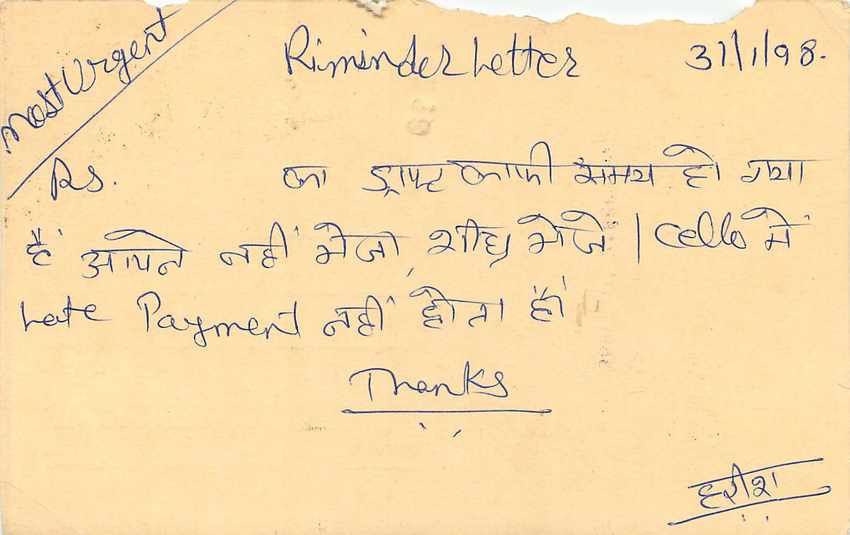 Most Urgent
Riminder Letter 31/1/98.
Rs. का ड्राफ्ट काफी समय हो गया
है आपने नहीं भेजा, शीघ्र भेजें | Cello में
Late Payment नहीं होता है।
Thanks
हरीश